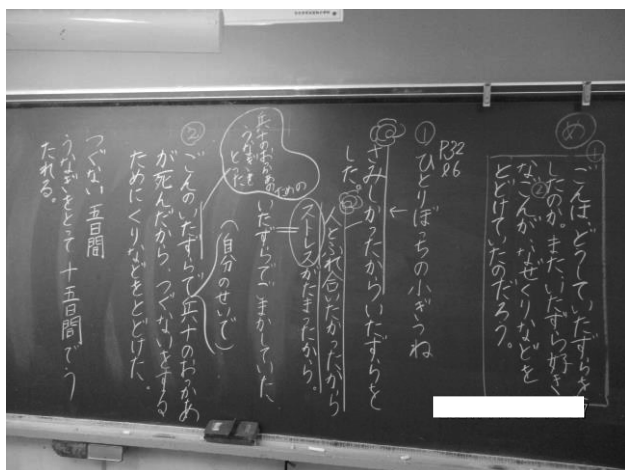 め
① ごんは、どうしていたずらを
したのか。また、いたずら好き
なごんが、②なぜくりなどを
とどけていたのだろう。
P32
l6
① ひとりぼっちの小ぎつね
↓
さみしかったからいたずらを
した。
人とふれ合いたかったから
ストレスがたまったから。
いたずらでごまかしていた。
兵十のおっかあの
ための
うなぎを
とった
(自分のせいで)
② ごんのいたずらで兵十のおっかあ
が死んだから、つぐないをする
ためにくりなどをとどけた。
つぐない 五日間
うなぎをとって 十五日間でう
たれる。